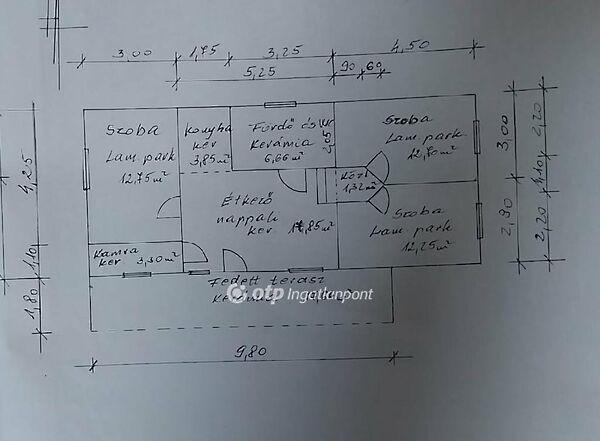 3,00 1,75 3,25 4,50
5,25 90 60
Szoba
Lam. park
12,75 m²
Konyha
ker
3,85 m²
Fürdő és Wc
Kerámia
6,66 m²
2,05
Szoba
Lam. park
12,70 m²
Közl
1,32 m²
Étkező
nappali
ker 17,85 m²
Szoba
Lam. park
12,25 m²
Kamra
ker 3,30 m²
Fedett terasz
otp Ingatlanpont
9,80
4,25
1,10
1,80
3,00
2,90
2,20
1,10
2,20